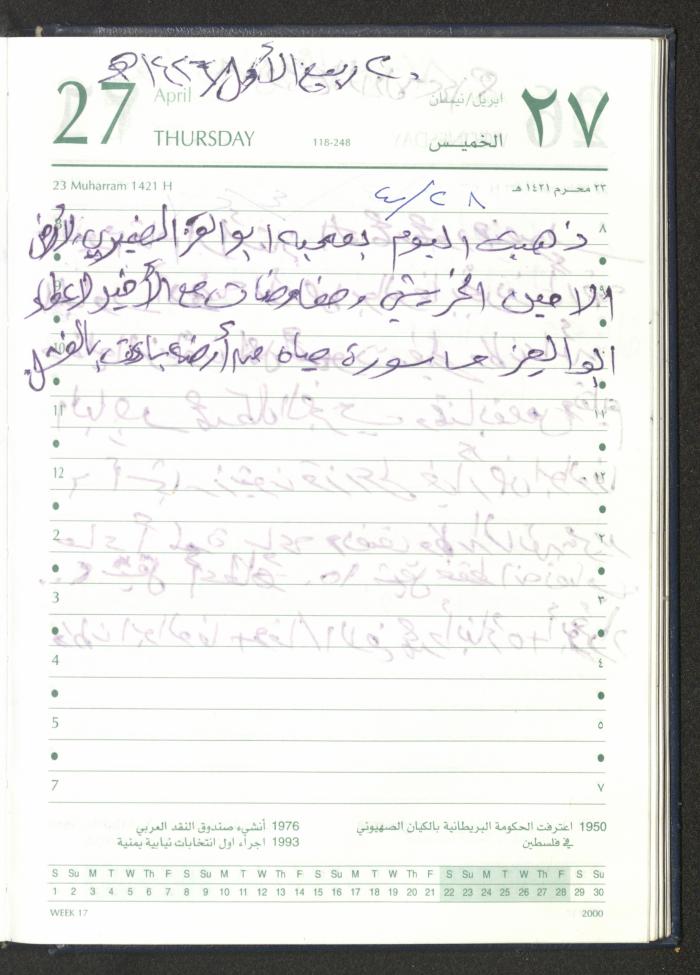 ٢٠ ربيع الأول ١٤٢٦ هـ
27 April ابريل/نيسان ٢٧
THURSDAY 118-248 الخميس
23 Muharram 1421 H ٢٣ محرم ١٤٢١ هـ
٤/٢٨
ذهبت اليوم بصحبة ابو العز الصغيري لأرض
الامين الخريشي ومفاوضات مع الأخير لإعطاء
ابو العز ماسورة مياه من أرضه
8 ٨
9 ٩
10 ١٠
11 ١١
12 ١٢
2 ٢
3 ٣
4 ٤
5 ٥
7 ٧
1950 اعترفت الحكومة البريطانية بالكيان الصهيوني في فلسطين
1976 أنشيء صندوق النقد العربي
1993 اجراء اول انتخابات نيابية يمنية
S Su M T W Th F S Su M T W Th F S Su M T W Th F S Su M T W Th F S Su
1 2 3 4 5 6 7 8 9 10 11 12 13 14 15 16 17 18 19 20 21 22 23 24 25 26 27 28 29 30
WEEK 17 2000